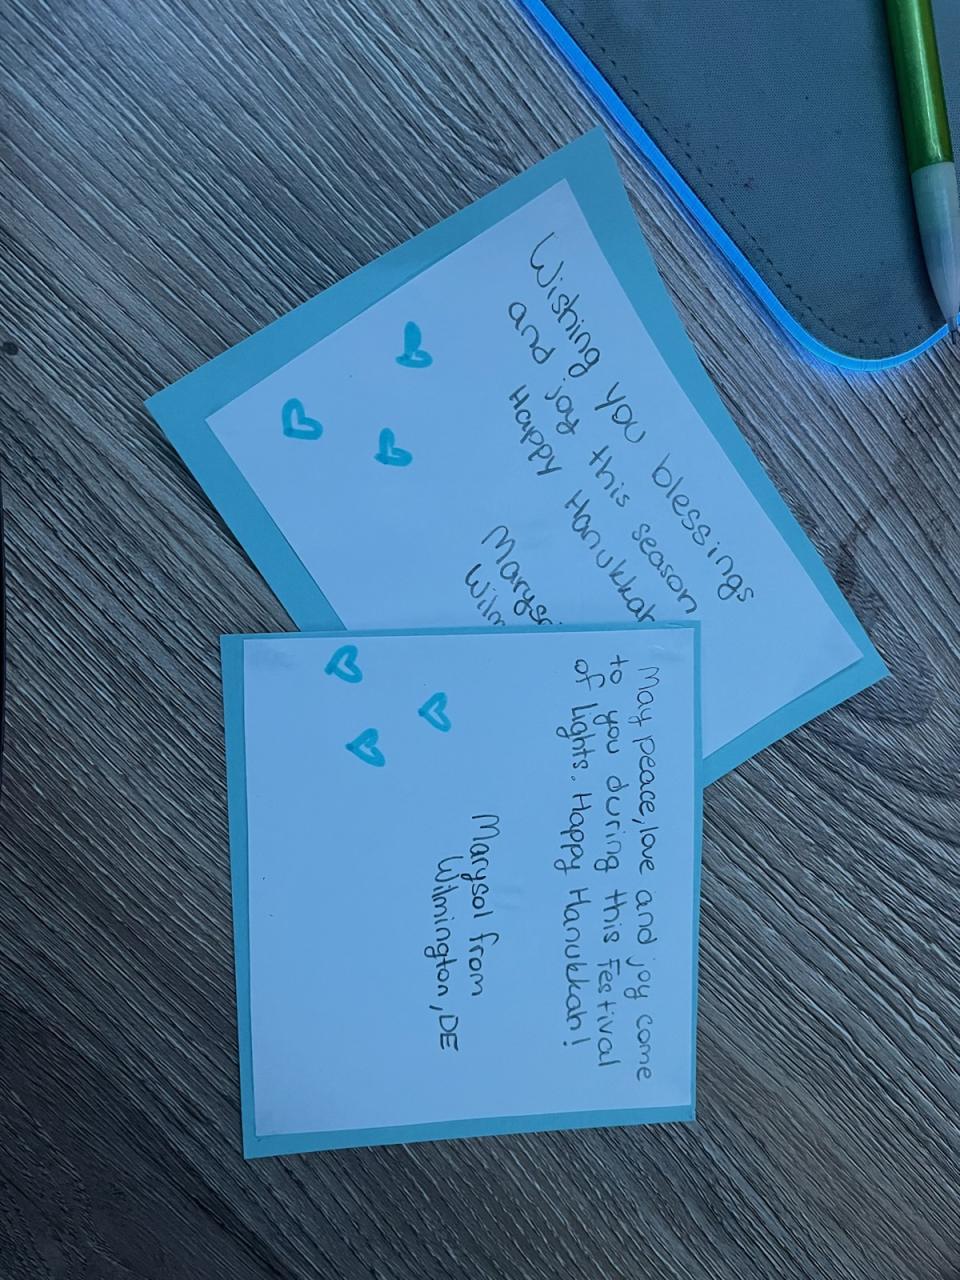 Wishing you blessings
and joy this season
Happy Hanukkah
May peace, love and joy come
to you during this Festival
of Lights. Happy Hanukkah!
Marysol from
Wilmington, DE